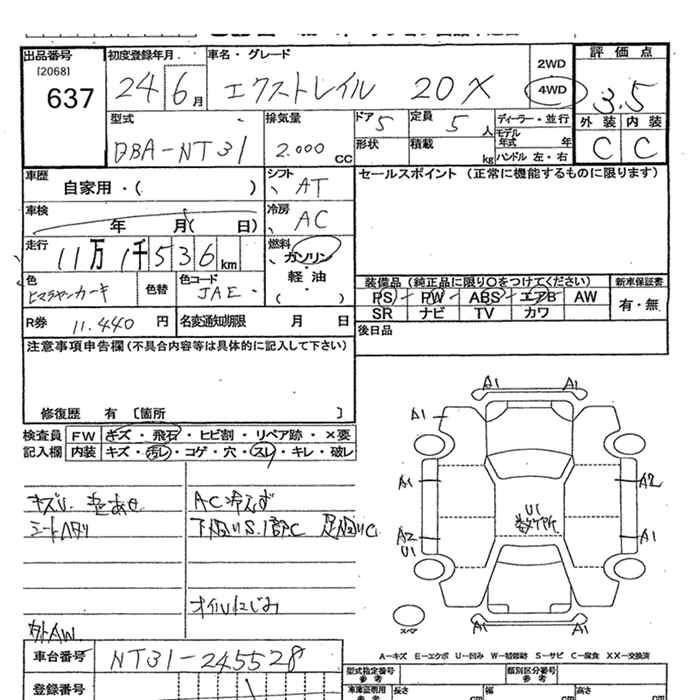 出品番号
[2068]
637
初度登録年月
24 6月
車名・グレード
エクストレイル 20X
2WD
4WD
評価点
3.5
外装 内装
C C
型式
DBA-NT31
排気量
2.000 CC
ドア 5
定員 5 人
形状
積載 kg
ディーラー・並行
モデル年式 年
ハンドル 左・右
車歴
自家用・( )
シフト
AT
車検
年 月( 日)
冷房
AC
走行
11万1千536km
燃料
ガソリン・
軽油
( ・ )
色
ヒマラヤンカーキ
色替
色コード
JAE
R券 11.440 円
名変通知期限 月 日
セールスポイント (正常に機能するものに限ります)
装備品 (純正品に限り○をつけてください)
新車保証書
PS PW ABS エアB AW
SR ナビ TV カワ
有・無
後日品
注意事項申告欄(不具合内容等は具体的に記入して下さい)
修復歴 有 [箇所 ]
検査員
記入欄
FW キズ・飛石・ヒビ割・リペア跡・×要
内装 キズ・汚レ・コゲ・穴・スレ・キレ・破レ
キズU 色あせ
シートヘタリ
AC冷えず
オイルにじみ
外AW
A1 A1
A1
A1 A2
U1
A2 A1
U1
スペア
A−キズ E−エクボ U−凹み W−補修跡 S−サビ C−腐食 XX−交換済
車台番号 NT31-245528
登録番号
型式指定番号
参考
類別区分番号
参考
車庫証明用
参考
長さ cm
幅 cm
高さ cm